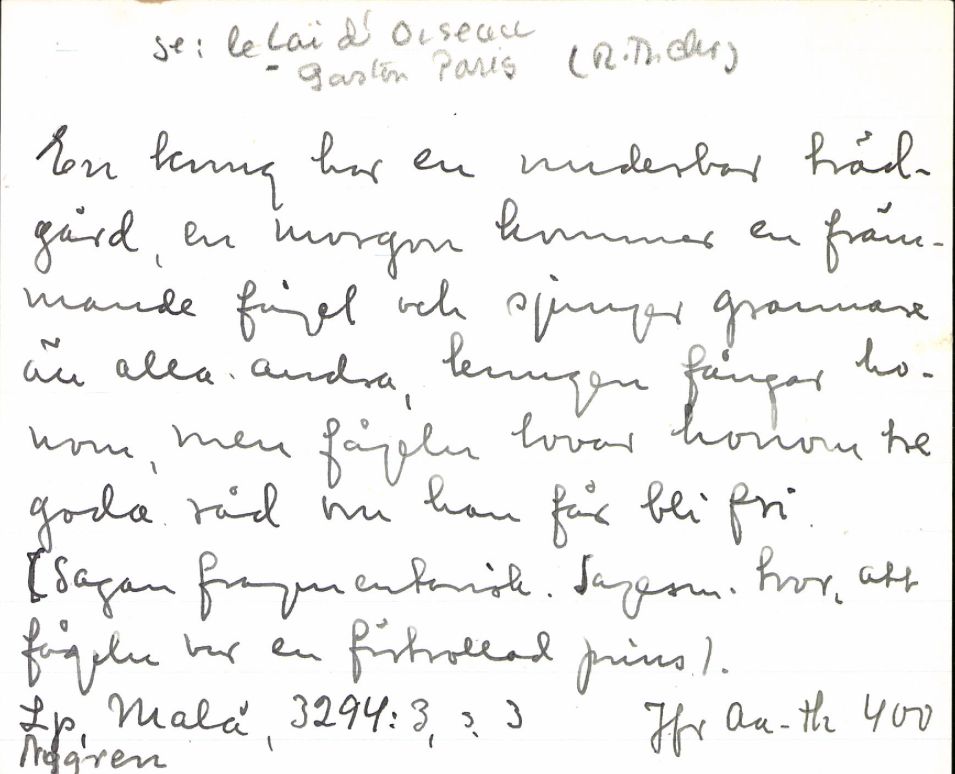 se: le Lai d' Oiseau
- Gaston Paris (R. Th. Chr)
En kung har en underbar träd-
gård, en morgon kommer en främ-
mande fågel och sjunger grannare
än alla andra, kungen fångar ho-
nom, men fågeln lovar honom tre
goda råd om han får bli fri.
[Sagan fragmentarisk. Sagesm. tror, att
fågeln var en förtrollad prins).
Lp, Malå, 3294:3, s. 3 Jfr Aa-Th 400
Nygren